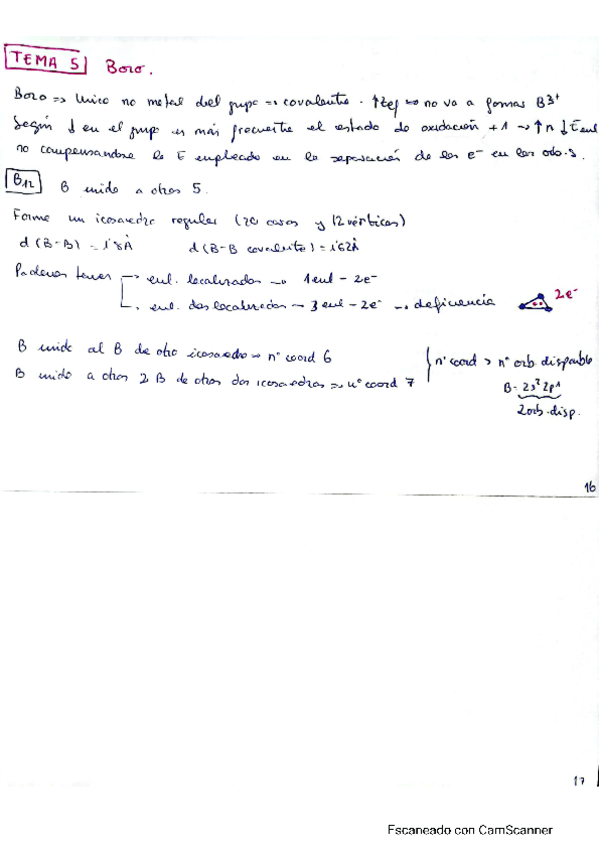 TEMA 5 Boro.
Boro => Único no metal del grupo => covalente. ↑Zef => no va a formar B3+
Según ↓ en el grupo es más frecuente el estado de oxidación +1 → ↑n ↓Eenl
no compensándose la E empleada en la separación de los e- en los orb.s.
B12 B unido a otros 5.
Forma un icosaedro regular (20 caras y 12 vértices)
d(B-B) = 1'8Å d(B-B covalente) = 1'62Å
Podemos tener → enl. localizados → 1enl - 2e-
→ enl. deslocalizados → 3enl - 2e- → deficiencia 2e-
B unido al B de otro icosaedro → nº coord 6
B unido a otros 2 B de otros dos icosaedros → nº coord 7
nº coord > nº orb. disponible
B - 2s² 2p¹
2 orb. disp.
16
17
Escaneado con CamScanner